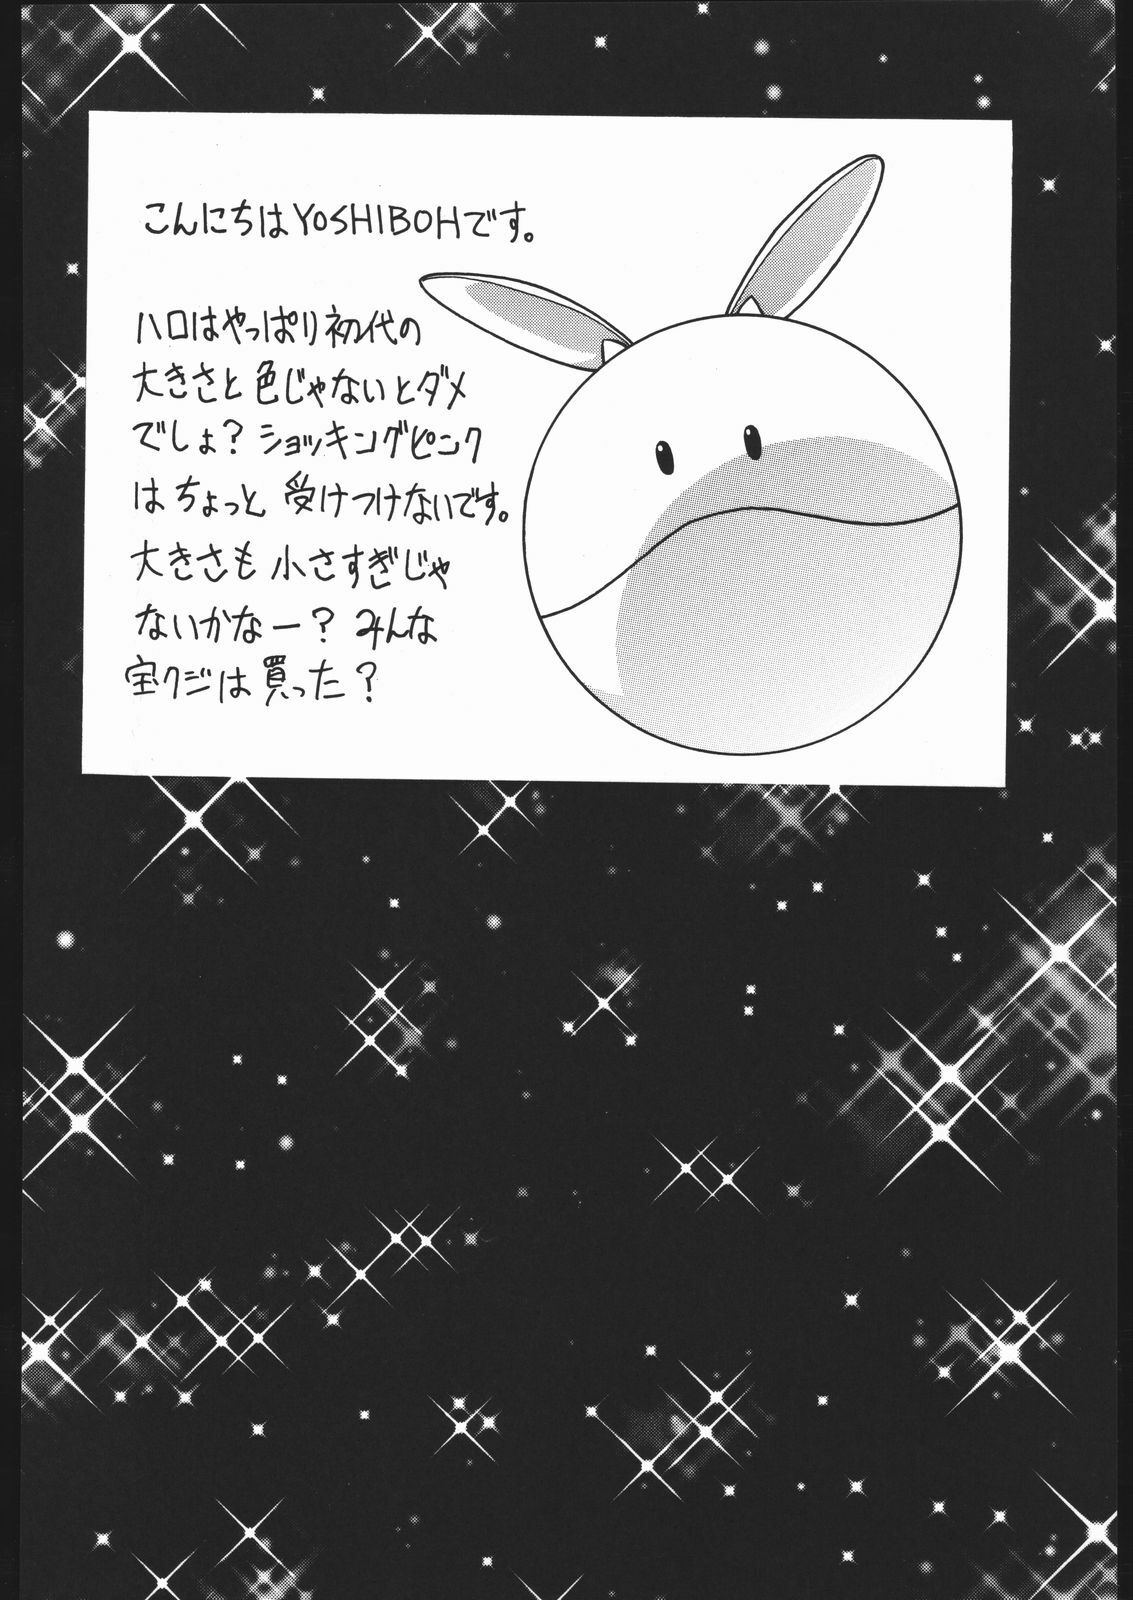 こんにちはYOSHIBOHです。
ハロはやっぱり初代の
大きさと色じゃないとダメ
でしょ?ショッキングピンク
はちょっと受けつけないです。
大きさも小さすぎじゃ
ないかなー?みんな
宝クジは買った?